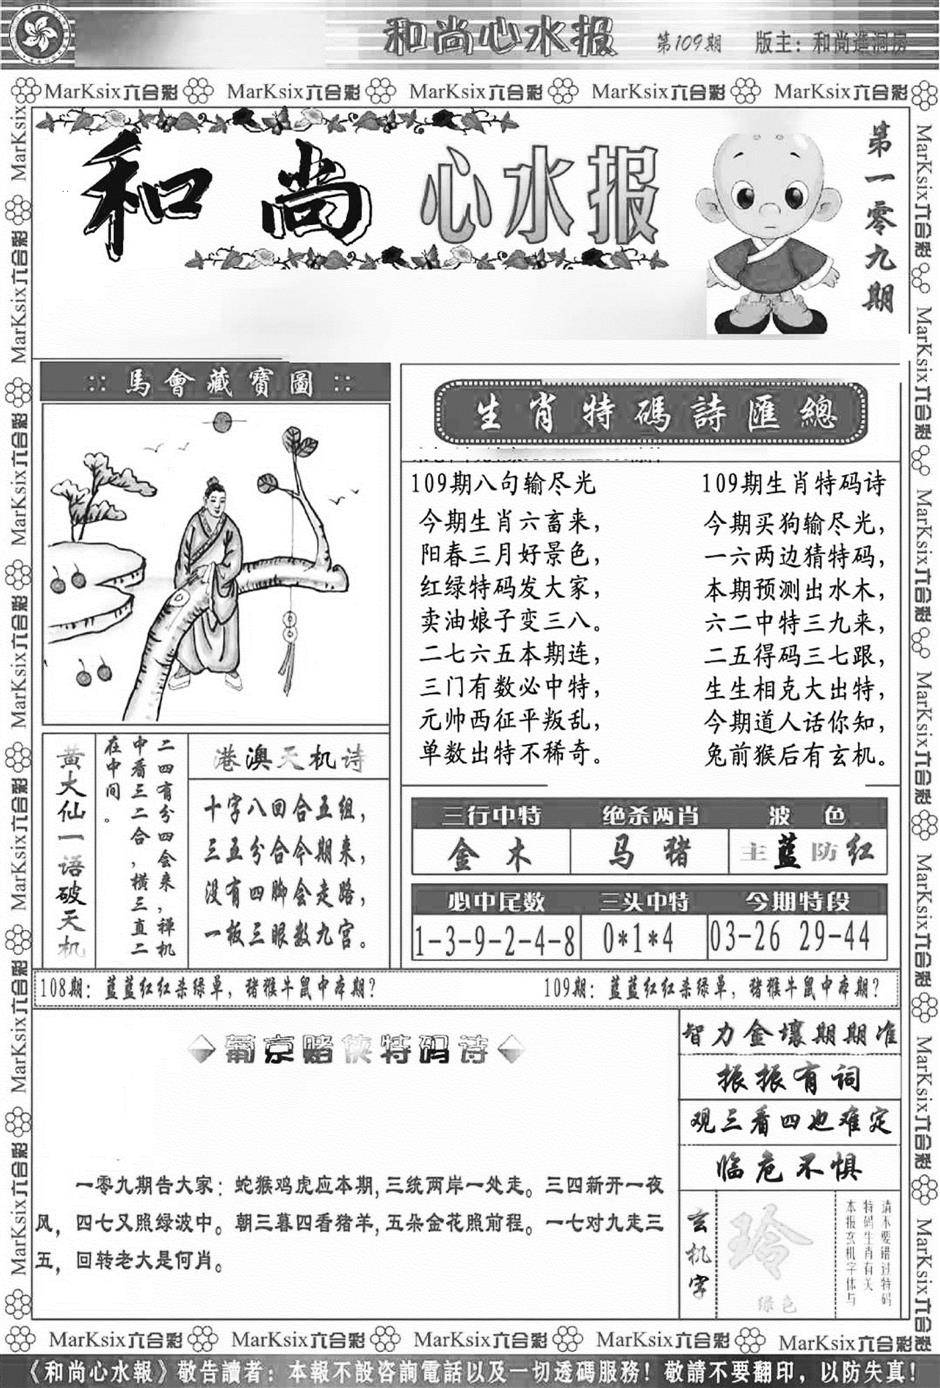 和尚心水报 第109期 版主：和尚进洞房
MarKsix六合彩 MarKsix六合彩 MarKsix六合彩 MarKsix六合彩 MarKsix六合彩
和尚心水报
第一零九期
::馬會藏寶圖::
生肖特碼詩匯總
109期八句输尽光
今期生肖六畜来，
阳春三月好景色，
红绿特码发大家，
卖油娘子变三八。
二七六五本期连，
三门有数必中特，
元帅西征平叛乱，
单数出特不稀奇。
109期生肖特码诗
今期买狗输尽光，
一六两边猜特码，
本期预测出水木，
六二中特三九来，
二五得码三七跟，
生生相克大出特，
今期道人话你知，
兔前猴后有玄机。
黄大仙一语破天机
二四有分四会来，禅机
中看三二合，横三直二
在中间。
港澳天机诗
十字八回合五组，
三五分合今期来，
没有四脚会走路，
一板三眼数九宫。
三行中特 绝杀两肖 波色
金木 马猪 主蓝防红
必中尾数 三头中特 今期特段
1-3-9-2-4-8 0*1*4 03-26 29-44
108期：蓝蓝红红杀绿单，猪猴牛鼠中本期？ 109期：蓝蓝红红杀绿单，猪猴牛鼠中本期？
葡京赌侠特码诗
一零九期告大家：蛇猴鸡虎应本期，三统两岸一处走。三四新开一夜
风，四七又照绿波中。朝三暮四看猪羊，五朵金花照前程。一七对九走三
五，回转老大是何肖。
智力金壤期期准
振振有词
观三看四也难定
临危不惧
玄机字
玲
绿色
请不要错过特码
特码生肖有关
本报玄机字体与
MarKsix六合彩 MarKsix六合彩 MarKsix六合彩 MarKsix六合彩 MarKsix六合彩
《和尚心水報》敬告讀者：本報不設咨詢電話以及一切透碼服務！敬請不要翻印，以防失真！